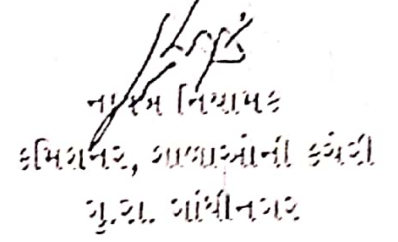 નાયબ નિયામક
કમિશનર, શાળાઓની કચેરી
ગુ.રા. ગાંધીનગર